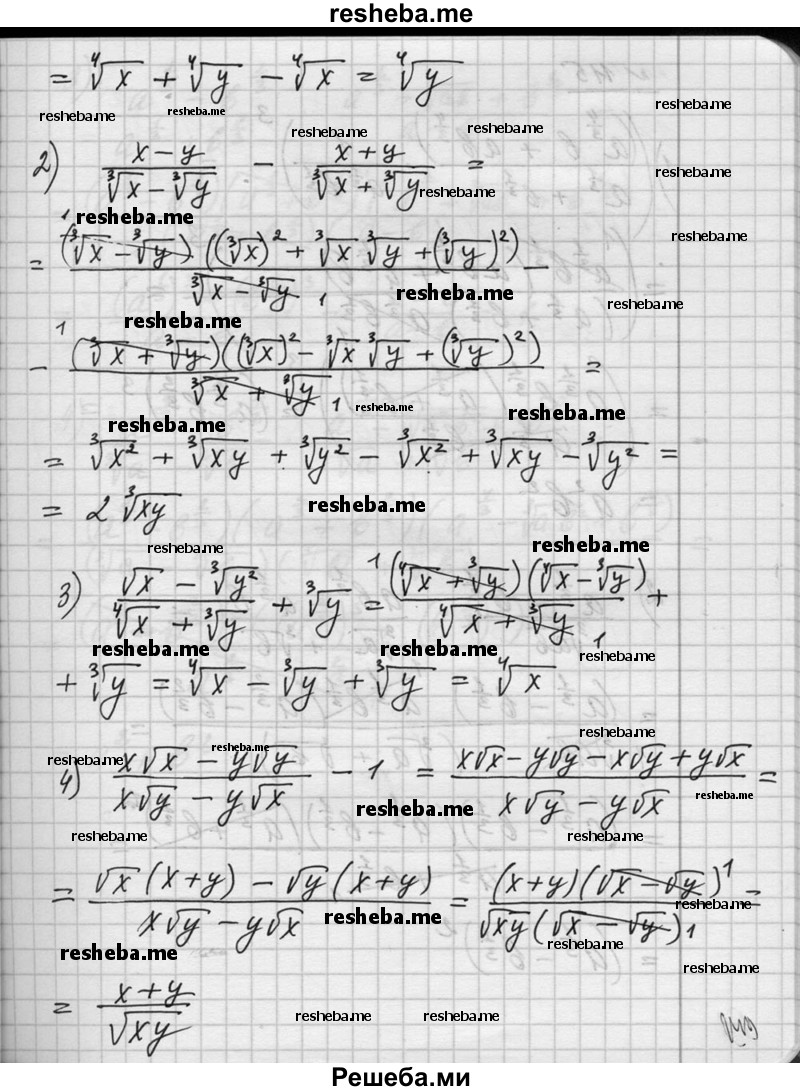 resheba.me
= ∜x + ∜y − ∜x = ∜y
resheba.me resheba.me resheba.me
resheba.me resheba.me
2) (x − y)/(∛x − ∛y) − (x + y)/(∛x + ∛y) =
resheba.me resheba.me
resheba.me resheba.me
= (∛x − ∛y)¹ ((∛x)² + ∛x ∛y + (∛y)²)/(∛x − ∛y) ₁ −
resheba.me resheba.me
resheba.me
− ¹(∛x + ∛y)((∛x)² − ∛x ∛y + (∛y)²)/(∛x + ∛y) ₁ =
resheba.me resheba.me
resheba.me
= ∛x² + ∛xy + ∛y² − ∛x² + ∛xy − ∛y² =
= 2 ∛xy
resheba.me
resheba.me resheba.me
3) (√x − ∛y²)/(∜x + ∛y) + ∛y = ¹(∜x + ∛y)(∜x − ∛y)/(∜x + ∛y) ₁ +
resheba.me resheba.me resheba.me
+ ∛y = ∜x − ∛y + ∛y = ∜x
resheba.me
resheba.me resheba.me
4) (x√x − y√y)/(x√y − y√x) − 1 = (x√x − y√y − x√y + y√x)/(x√y − y√x) =
resheba.me resheba.me
resheba.me resheba.me
= (√x (x + y) − √y (x + y))/(x√y − y√x) = (x + y)(√x − √y)¹/(√xy (√x − √y)) ₁ =
resheba.me resheba.me
resheba.me resheba.me
resheba.me
= (x + y)/√xy
resheba.me resheba.me
Решеба.ми